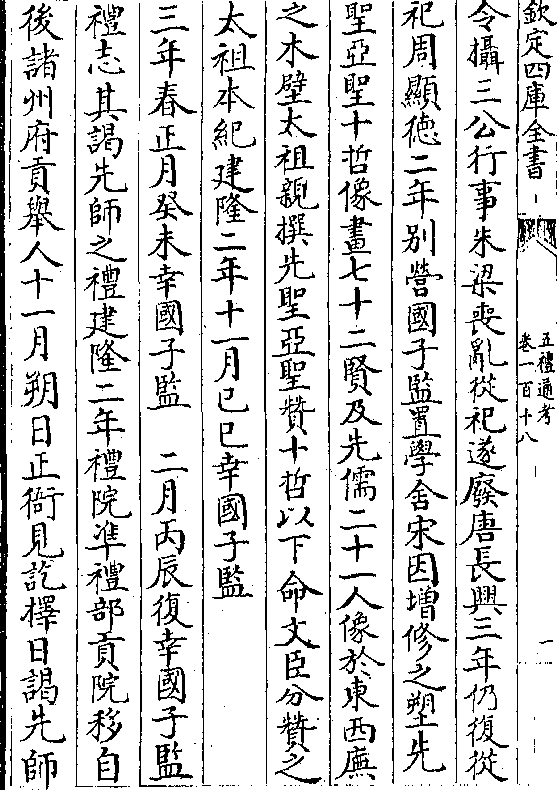 欽定四庫全書
五禮通考
卷一百十八
一
令攝三公行事朱梁喪亂從祀遂廢唐長興三年仍復從
祀周顯德二年別營國子監置學舍宋因增修之塑先
聖亞聖十哲像畫七十二賢及先儒二十一人像於東西廡
之木壁太祖親撰先聖亞聖贊十哲以下命文臣分贊之
太祖本紀建隆二年十一月已巳幸國子監
三年春正月癸未幸國子監　二月丙辰復幸國子監
禮志其謁先師之禮建隆二年禮院準禮部貢院移自
後諸州府貢舉人十一月朔日正衙見訖擇日謁先師